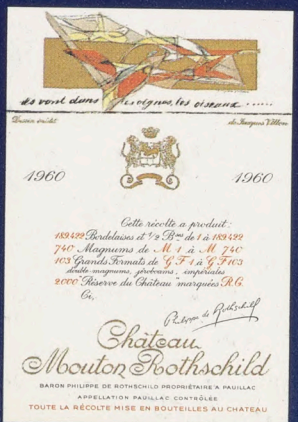 ils vont dans les vignes, les oiseaux ......
Dessin inédit de Jacques Villon
1960 1960
Cette récolte a produit :
189.422 Bordelaises et 1/2 Bses de 1 à 189.422
740 Magnums de M 1 à M 740
103 Grands Formats de G F 1 à G F 103
double-magnums, jéroboams, impériales
2000 "Réserve du Château" marquées R.C.
Ci,
Philippe de Rothschild
Château
Mouton Rothschild
BARON PHILIPPE DE ROTHSCHILD PROPRIÉTAIRE A PAUILLAC
APPELLATION PAUILLAC CONTRÔLÉE
TOUTE LA RÉCOLTE MISE EN BOUTEILLES AU CHATEAU